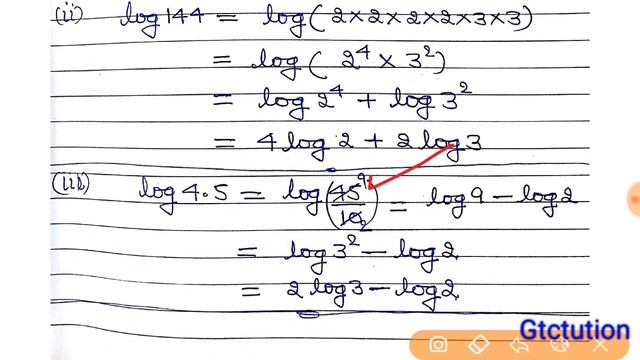 (ii) log 144 = log ( 2×2×2×2×3×3)
= log ( 2⁴ × 3²)
= log 2⁴ + log 3²
= 4 log 2 + 2 log 3
(iii) log 4.5 = log (45⁹/10₂) = log 9 - log 2
= log 3² - log 2
= 2 log 3 - log 2
Gtctution